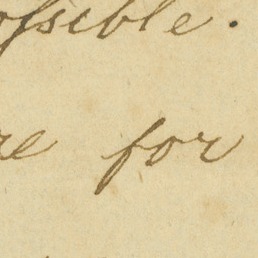 ossible.
re for